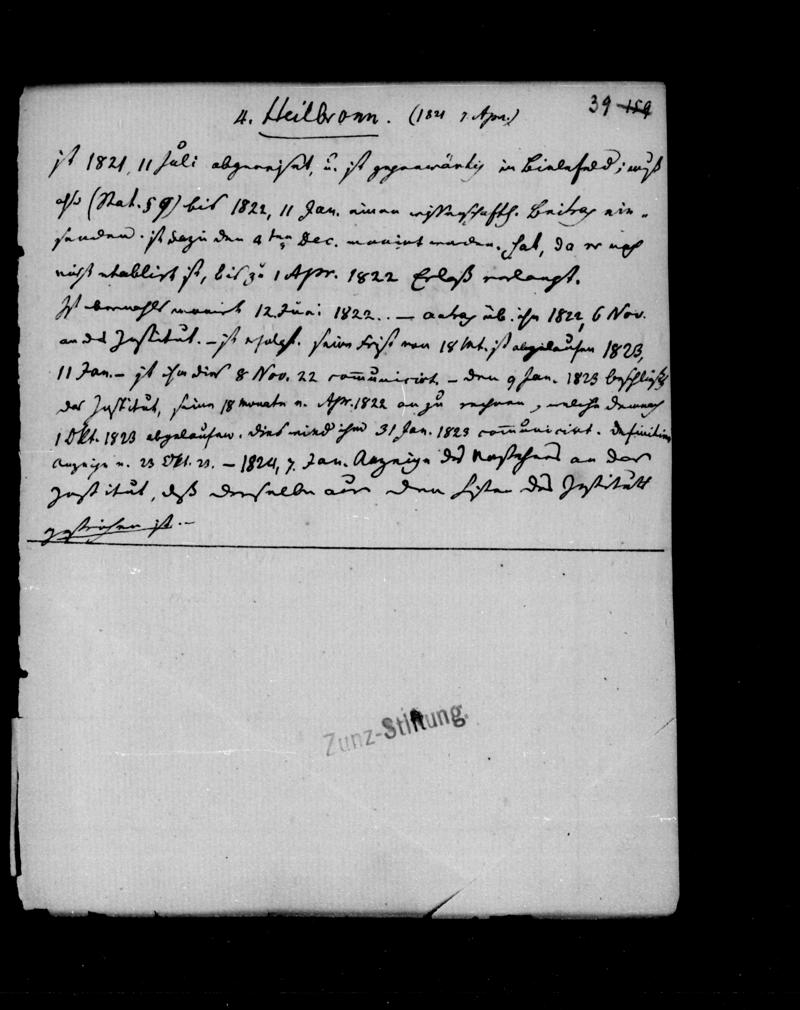 39 159
4. Heilbronn. (1821 7 Apr.)
ist 1821, 11 Juli abgereiset, u. ist gegenwärtig in Bielefeld; muß
also (Stat. § 9) bis 1822, 11 Jan. einen wissenschaftl. Beitrag ein-
senden. ist dazu den 4ten Dec. monirt worden. hat, da er noch
nicht etablirt ist, bis zu 1 Apr. 1822 Erlaß verlangt.
Ist abermahls monirt 12 Juni 1822. – Antrag üb. ihn 1822, 6 Nov.
an das Institut. – ist erfolgt. seine Frist von 18 Mt. ist abgelaufen 1823,
11 Jan. – ist ihm dies 8 Nov. 22 communicirt. – den 9 Jan. 1823 beschließt
das Institut, seine 18 Monate v. Apr. 1822 an zu rechnen, welche demnach
1 Okt. 1823 abgelaufen. dies wird ihm 31 Jan. 1823 communicirt. definitive
Anzeige v. 23 Okt. 23. – 1824, 7. Jan. Anzeige des Vorstehers an das
Institut, daß derselbe aus den Listen des Instituts
gestrichen ist. –
Zunz-Stiftung.